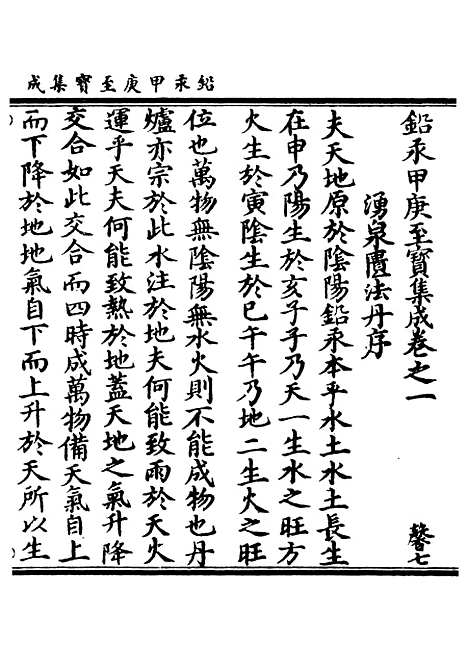 鉛汞甲庚至寶集成
鉛汞甲庚至寶集成卷之一 馨七
湧泉匱法丹序
夫天地原於陰陽鉛汞本乎水土水土長生
在申乃陽生於亥子子乃天一生水之旺方
火生於寅陰生於巳午午乃地二生火之旺
位也萬物無陰陽無水火則不能成物也丹
爐亦宗於此水注於地夫何能致雨於天火
運乎天夫何能致熱於地蓋天地之氣升降
交合如此交合而四時成萬物備天氣自上
而下降於地地氣自下而上升於天所以生